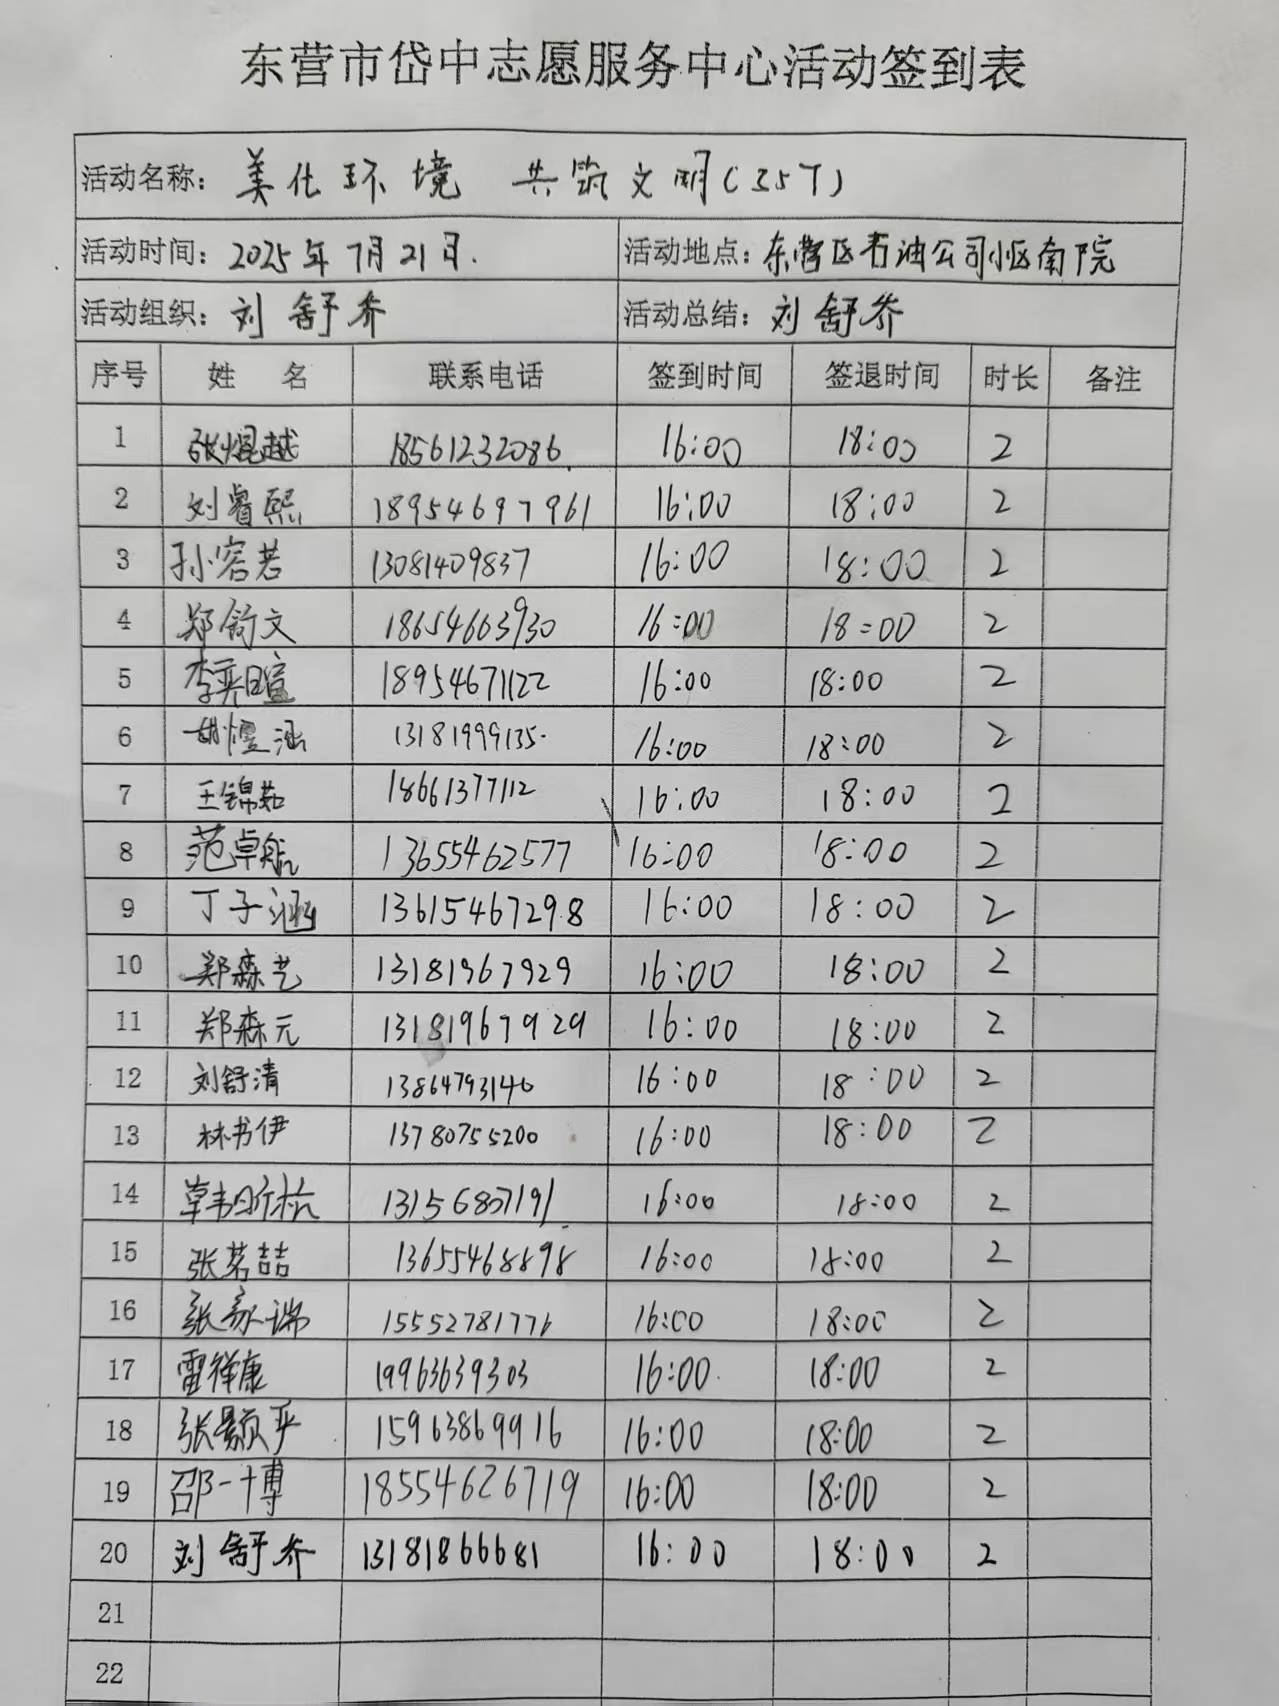 东营市岱中志愿服务中心活动签到表
活动名称: 美化环境 共筑文明(35T)
活动时间: 2025年7月21日. 活动地点: 东营区石油公司小区南院
活动组织: 刘舒乔 活动总结: 刘舒乔
序号 姓 名 联系电话 签到时间 签退时间 时长 备注
1 张焜越 18561232086 16:00 18:00 2
2 刘睿熙 18954697961 16:00 18:00 2
3 孙容若 13081409837 16:00 18:00 2
4 郑舒文 18654663930 16:00 18:00 2
5 李奕暄 18954671122 16:00 18:00 2
6 胡煜涵 13181999135 16:00 18:00 2
7 王锦茹 18661377112 16:00 18:00 2
8 范卓航 13655462577 16:00 18:00 2
9 丁子涵 13615467298 16:00 18:00 2
10 郑森艺 13181967929 16:00 18:00 2
11 郑森元 13181967929 16:00 18:00 2
12 刘舒清 13864793140 16:00 18:00 2
13 林书伊 13780755200 16:00 18:00 2
14 13156807191 16:00 18:00 2
15 张茗喆 13655468898 16:00 18:00 2
16 张家瑞 15552781776 16:00 18:00 2
17 雷祥康 19963639303 16:00 18:00 2
18 张颢严 15963869916 16:00 18:00 2
19 邵一博 18554626719 16:00 18:00 2
20 刘舒乔 13181866681 16:00 18:00 2
21
22